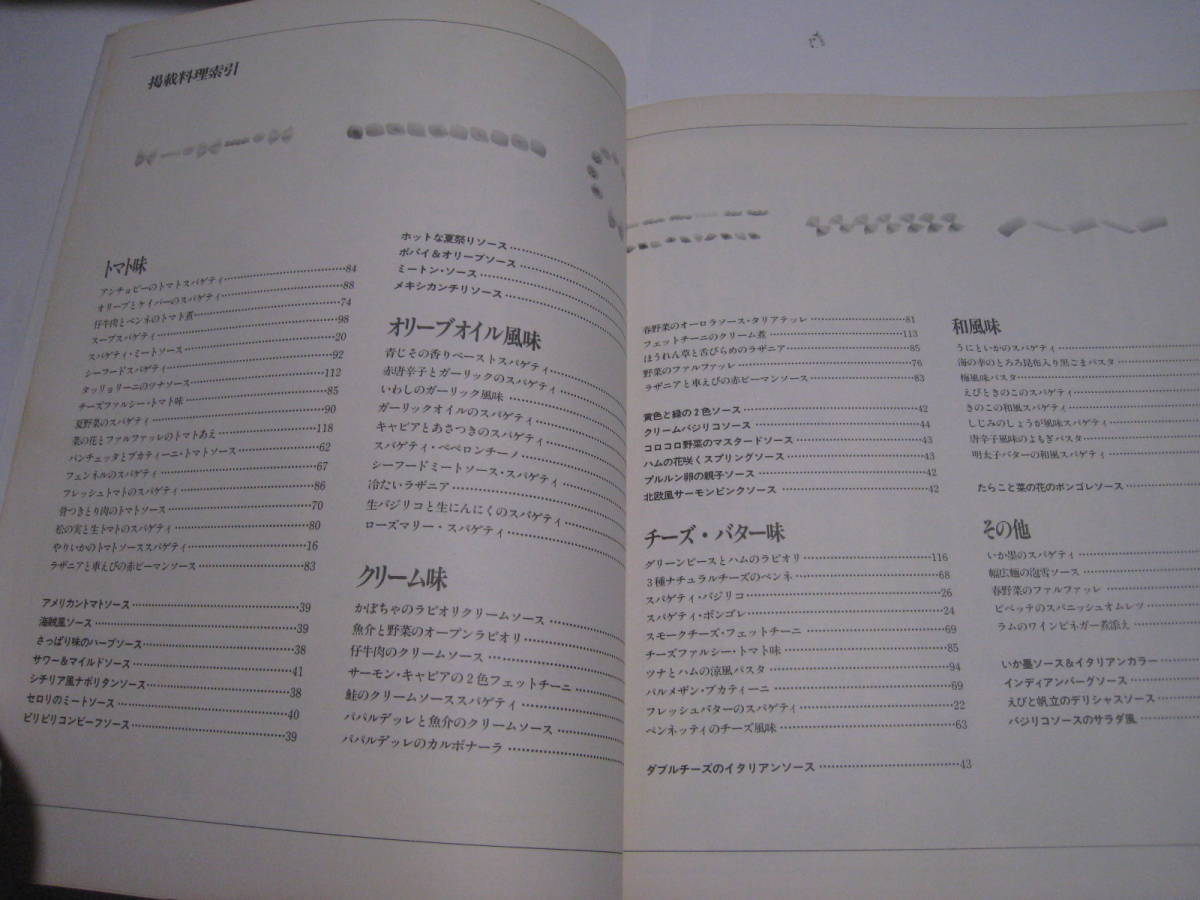 掲載料理索引
トマト味
アンチョビーのトマトスパゲティ……84
オリーブとケイパーのスパゲティ……88
仔牛肉とペンネのトマト煮……74
スープスパゲティ……98
スパゲティ・ミートソース……20
シーフードスパゲティ……92
タッリョリーニのツナソース……112
チーズファルシー・トマト味……85
夏野菜のスパゲティ……90
菜の花とファルファッレのトマトあえ……118
パンチェッタとブカティーニ・トマトソース……62
フェンネルのスパゲティ……67
フレッシュトマトのスパゲティ……86
骨つきとり肉のトマトソース……70
松の実と生トマトのスパゲティ……80
やりいかのトマトソーススパゲティ……16
ラザニアと車えびの赤ピーマンソース……83
アメリカントマトソース……39
海賊風ソース……39
さっぱり味のハーブソース……38
サワー&マイルドソース……41
シチリア風ナポリタンソース……38
セロリのミートソース……40
ピリピリコンビーフソース……39
ホットな夏祭りソース……
ポパイ&オリーブソース……
ミートン・ソース……
メキシカンチリソース……
オリーブオイル風味
青じその香りペーストスパゲティ……
赤唐辛子とガーリックのスパゲティ……
いわしのガーリック風味……
ガーリックオイルのスパゲティ……
キャビアとあさつきのスパゲティ……
スパゲティ・ペペロンチーノ……
シーフードミートソース・スパゲティ……
冷たいラザニア……
生バジリコと生にんにくのスパゲティ……
ローズマリー・スパゲティ……
クリーム味
かぼちゃのラビオリクリームソース……
魚介と野菜のオープンラビオリ……
仔牛肉のクリームソース……
サーモン・キャビアの2色フェットチーニ……
鮭のクリームソーススパゲティ……
パパルデッレと魚介のクリームソース……
パパルデッレのカルボナーラ……
春野菜のオーロラソース・タリアテッレ……81
フェットチーニのクリーム煮……113
ほうれん草と舌びらめのラザニア……85
野菜のファルファッレ……76
ラザニアと車えびの赤ピーマンソース……83
黄色と緑の2色ソース……42
クリームバジリコソース……44
コロコロ野菜のマスタードソース……43
ハムの花咲くスプリングソース……43
プルルン卵の親子ソース……42
北欧風サーモンピンクソース……42
チーズ・バター味
グリーンピースとハムのラビオリ……116
3種ナチュラルチーズのペンネ……68
スパゲティ・バジリコ……26
スパゲティ・ボンゴレ……24
スモークチーズ・フェットチーニ……69
チーズファルシー・トマト味……85
ツナとハムの涼風パスタ……94
パルメザン・ブカティーニ……69
フレッシュバターのスパゲティ……22
ペンネッティのチーズ風味……63
ダブルチーズのイタリアンソース……43
和風味
うにといかのスパゲティ……
海の幸のとろろ昆布入り黒ごまパスタ……
梅風味パスタ……
えびときのこのスパゲティ……
きのこの和風スパゲティ……
しじみのしょうが風味スパゲティ……
唐辛子風味のよもぎパスタ……
明太子バターの和風スパゲティ……
たらこと菜の花のボンゴレソース……
その他
いか墨のスパゲティ……
幅広麺の泡雪ソース……
春野菜のファルファッレ……
ピペッテのスパニッシュオムレツ……
ラムのワインビネガー煮添え……
いか墨ソース&イタリアンカラー……
インディアンバーグソース……
えびと帆立のデリシャスソース……
バジリコソースのサラダ風……